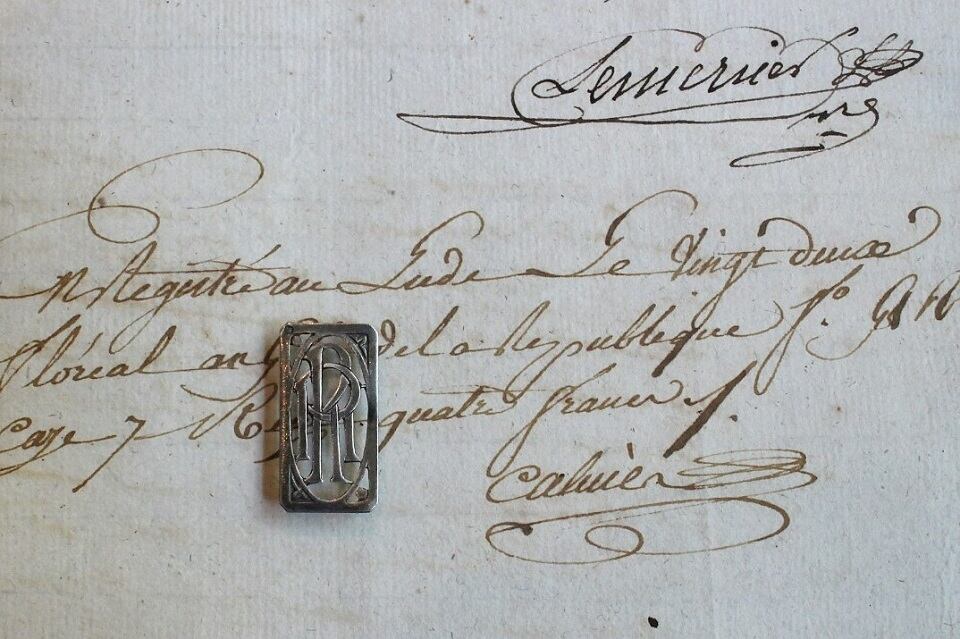 Lemercier
Registré au Lude Le Vingt deux
floreal an de la Republique f.o
Case 7 R quatre francs
Cahier